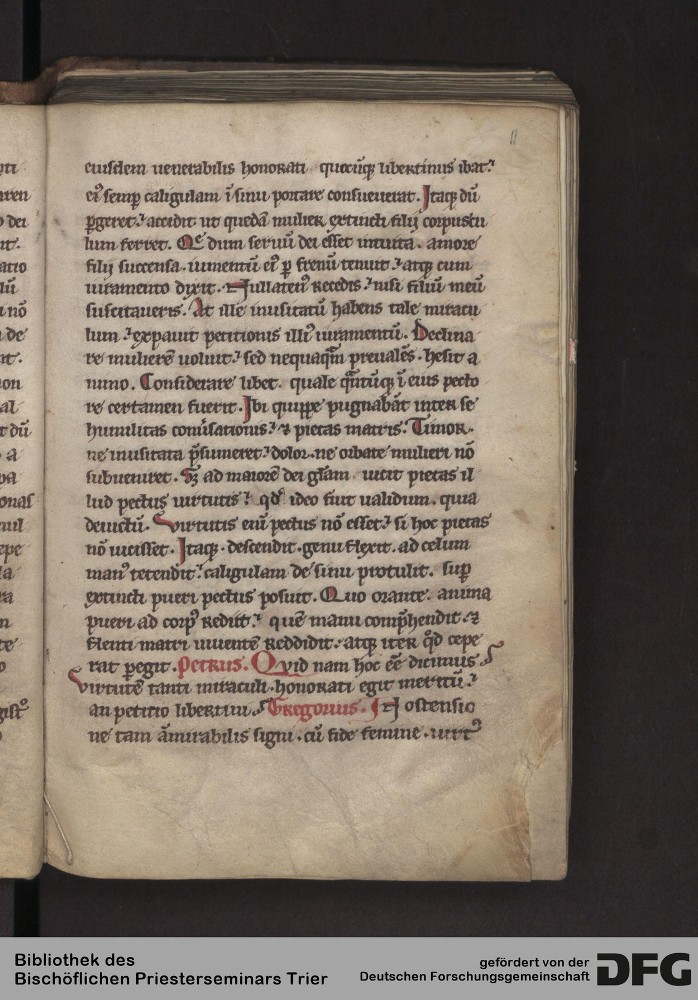 11
eiusdem uenerabilis honorati quocūqꝫ libertinus ibat.
eiꝰ semꝑ caligulam ī sinu portare consueuerat. Itaqꝫ dū
ꝑgeret. accidit ut quedā mulier extincti filij corpuscu
lum ferret. Q̄ dum seruū dei esset intuita. amore
filij succensa. iumentū eiꝰ ꝑ frenū tenuit. atqꝫ cum
iuramento dixit. Nullatenꝰ recedis. nisi filiū meū
suscitaueris. At ille inusitatū habens tale miracu
lum. expauit petitionis illiꝰ iuramentū. Declina
re mulierē uoluit. sed nequaqͣm preualēs. hesit a
nimo. Considerare libet. quale qͣntūqꝫ ī eius pecto
re certamen fuerit. Ibi quippe pugnabāt inter se
humilitas conūsationis. ⁊ pietas matris. Timor.
ne inusitata p̄sumeret. dolor. ne orbate mulieri nō
subueniret. Sꝫ ad maiorē dei głam. uicit pietas il
lud pectus uirtutis. qd̓ ideo fuit ualidum. quia
deuictū. Virtutis eni pectus nō esset. si hoc pietas
nō uicisset. Itaqꝫ. descendit. genu flexit. ad celum
manꝰ tetendit. caligulam de sinu protulit. suꝑ
extincti pueri pectus posuit. Quo orante. anima
pueri ad corpꝰ rediit. quē manu comp̄hendit. ⁊
flenti matri uiuentē reddidit. atqꝫ iter qd̓ cepe
rat ꝑegit. Petrus. Quid nam hoc eē dicimus.
Virtutē tanti miraculi. honorati egit meritū.
an petitio libertini. Gregorius. In ostensio
ne tam āmirabilis signi. cū fide femine. uirtꝰ
Bibliothek des
Bischöflichen Priesterseminars Trier
gefördert von der
Deutschen Forschungsgemeinschaft
DFG